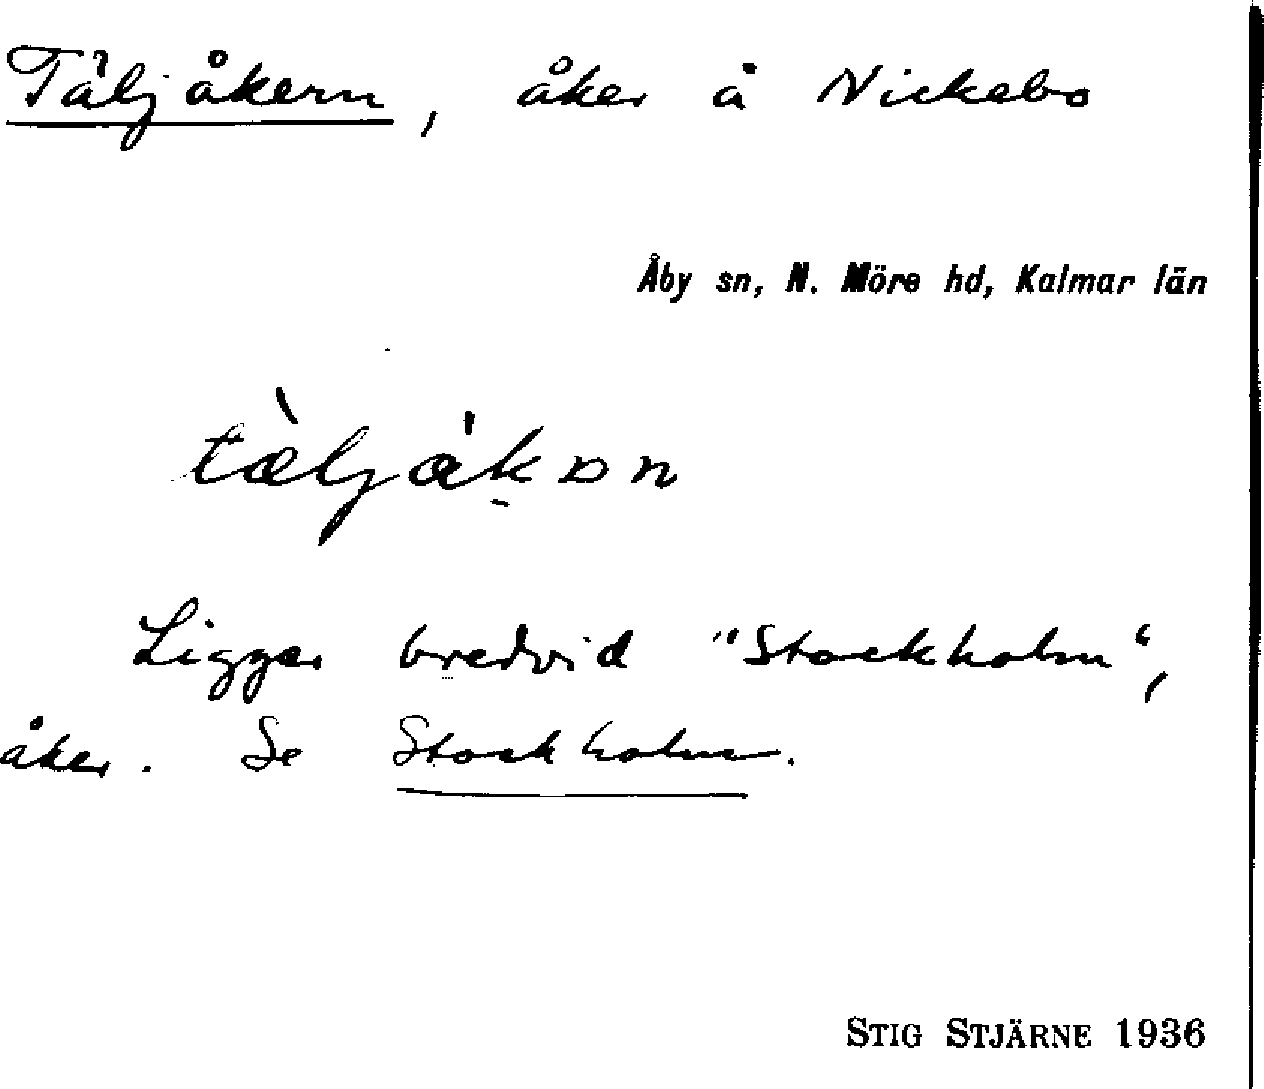 Täljåkern, åker å Nickebo
Åby sn, N. Möre hd, Kalmar län
Ligger bredvid "Stockholm",
åker. Se Stockholm.
STIG STJÄRNE 1936